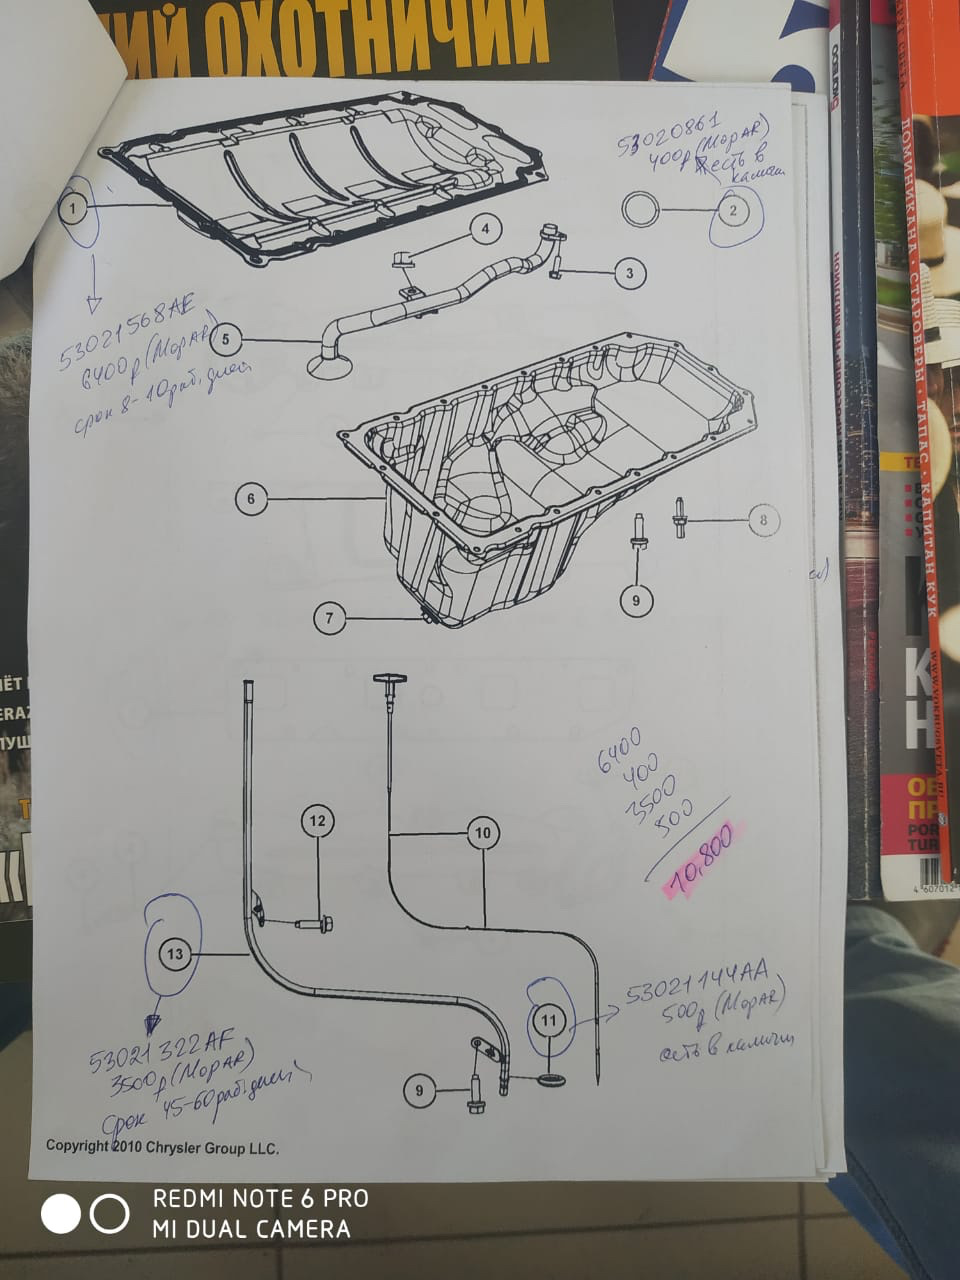 ИЙ ОХОТНИЧИЙ
53020861
400р (МОРАР)
есть в
1
2
4
3
5
53021568AE
6400р (МОРАР)
срок 8-10 раб. дней
6
8
9
7
6400
400
3500
500
10,800
12
10
13
11
53021144AA
500р (МОРАР)
есть в наличии
53021322AF
3500р (МОРАР)
срок 45-60 раб. дней
9
Copyright 2010 Chrysler Group LLC.
ДОМИНИКАНА · СТАРОВЕРЫ · ТАПАС · КАПИТАН КУК
WWW.VOKRUGSVETA.RU
POR
TUR
4 607012
REDMI NOTE 6 PRO
MI DUAL CAMERA